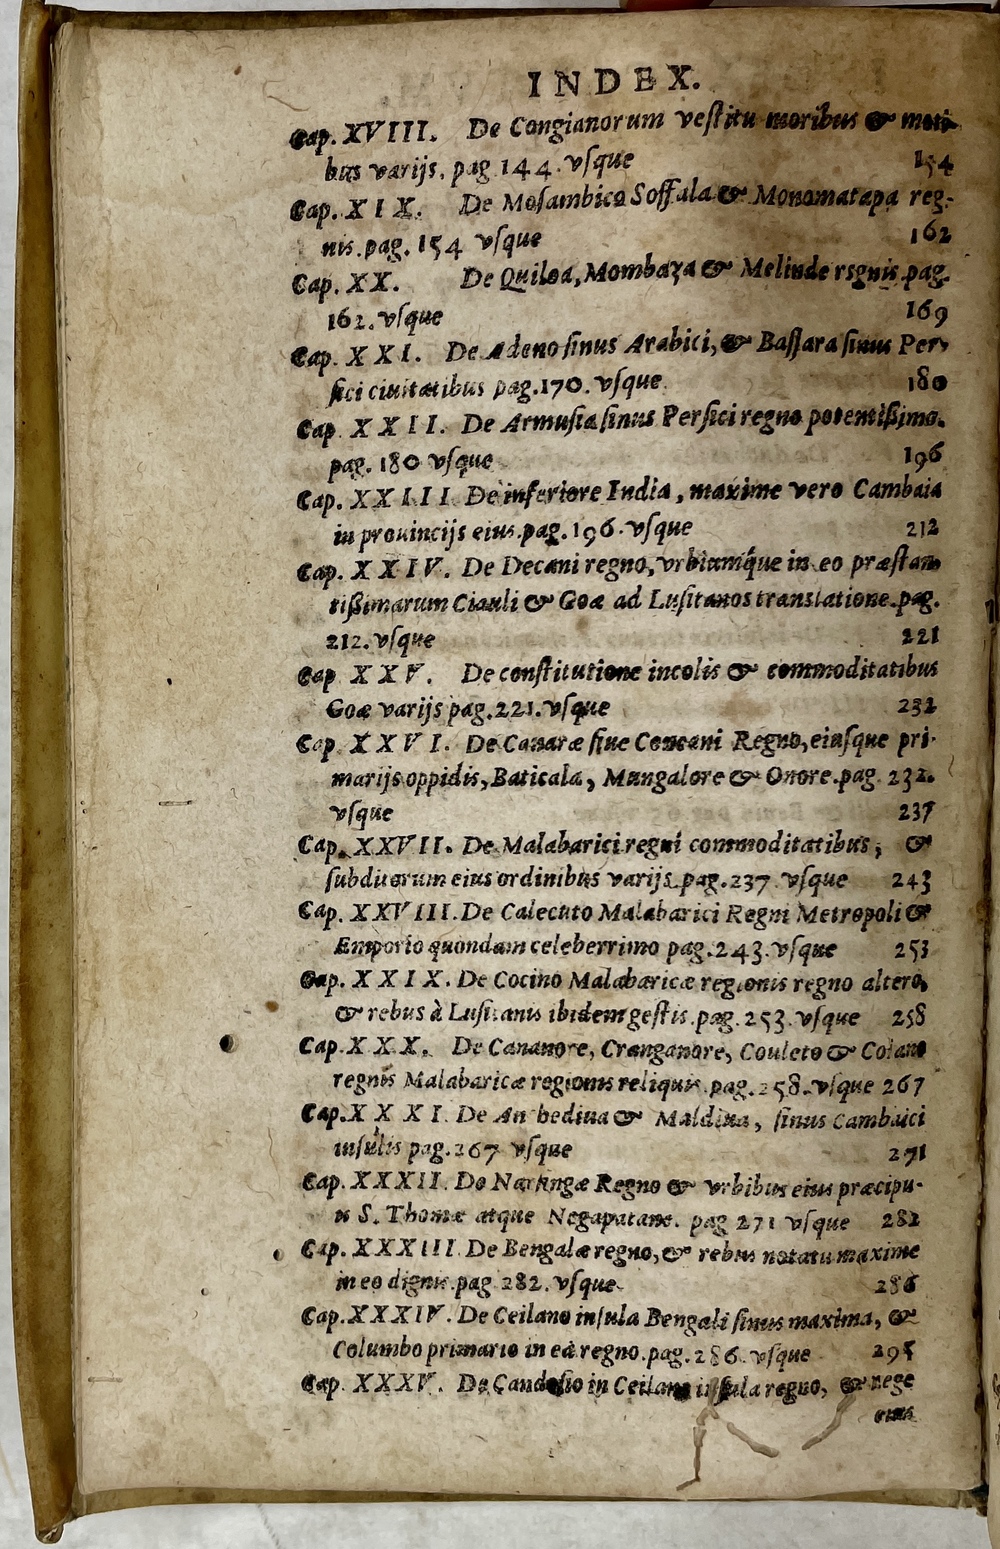 INDEX.
Cap. XVIII. De Congianorum veſtitu moribus & moti-
bus varijs. pag 144. vſque 154
Cap. XIX. De Moſambico Soffala & Monomatapa reg-
nis. pag. 154 vſque 162
Cap. XX. De Quiloa, Mombaza & Melinde rsgnis. pag.
162. vſque 169
Cap. XXI. De Adeno ſinus Arabici, & Baſſara ſinus Per-
ſici ciuitatibus pag. 170. vſque 180
Cap. XXII. De Armuſia ſinus Perſici regno potentißimo.
pag. 180 vſque 196
Cap. XXIII. De inferiore India, maxime vero Cambaia
in prouincijs eius. pag. 196. vſque 212
Cap. XXIV. De Decani regno, vrbiumque in eo præſtan-
tißimarum Ciauli & Goæ ad Luſitanos translatione. pag.
212. vſque 221
Cap XXV. De conſtitutione incolis & commoditatibus
Goæ varijs pag. 221. vſque 232
Cap. XXVI. De Canaræ ſiue Concani Regno, eiuſque pri-
marijs oppidis, Baticala, Mangalore & Onore. pag. 232.
vſque 237
Cap. XXVII. De Malabarici regni commoditatibus, &
ſubditorum eius ordinibus varijs. pag. 237. vſque 243
Cap. XXVIII. De Calecuto Malabarici Regni Metropoli &
Emporio quondam celeberrimo pag. 243. vſque 253
Cap. XXIX. De Cocino Malabaricæ regionis regno altero,
& rebus à Luſitanis ibidem geſtis. pag. 253. vſque 258
Cap. XXX. De Cananore, Cranganore, Couleto & Colano
regnis Malabaricæ regionis reliquis. pag. 258. vſque 267
Cap. XXXI. De An bediua & Maldiua, ſinus Cambaici
inſulis pag. 267 vſque 271
Cap. XXXII. De Narſingæ Regno & vrbibus eius præcipu-
is S. Thomæ atque Negapatane. pag 271 vſque 282
Cap. XXXIII. De Bengalæ regno, & rebus notatu maxime
in eo dignis. pag. 282. vſque 286
Cap. XXXIV. De Ceilano inſula Bengali ſinus maxima, &
Columbo primario in eâ regno. pag. 286. vſque 295
Cap. XXXV. De Candeſio in Ceilano inſula regno, & rege
eius